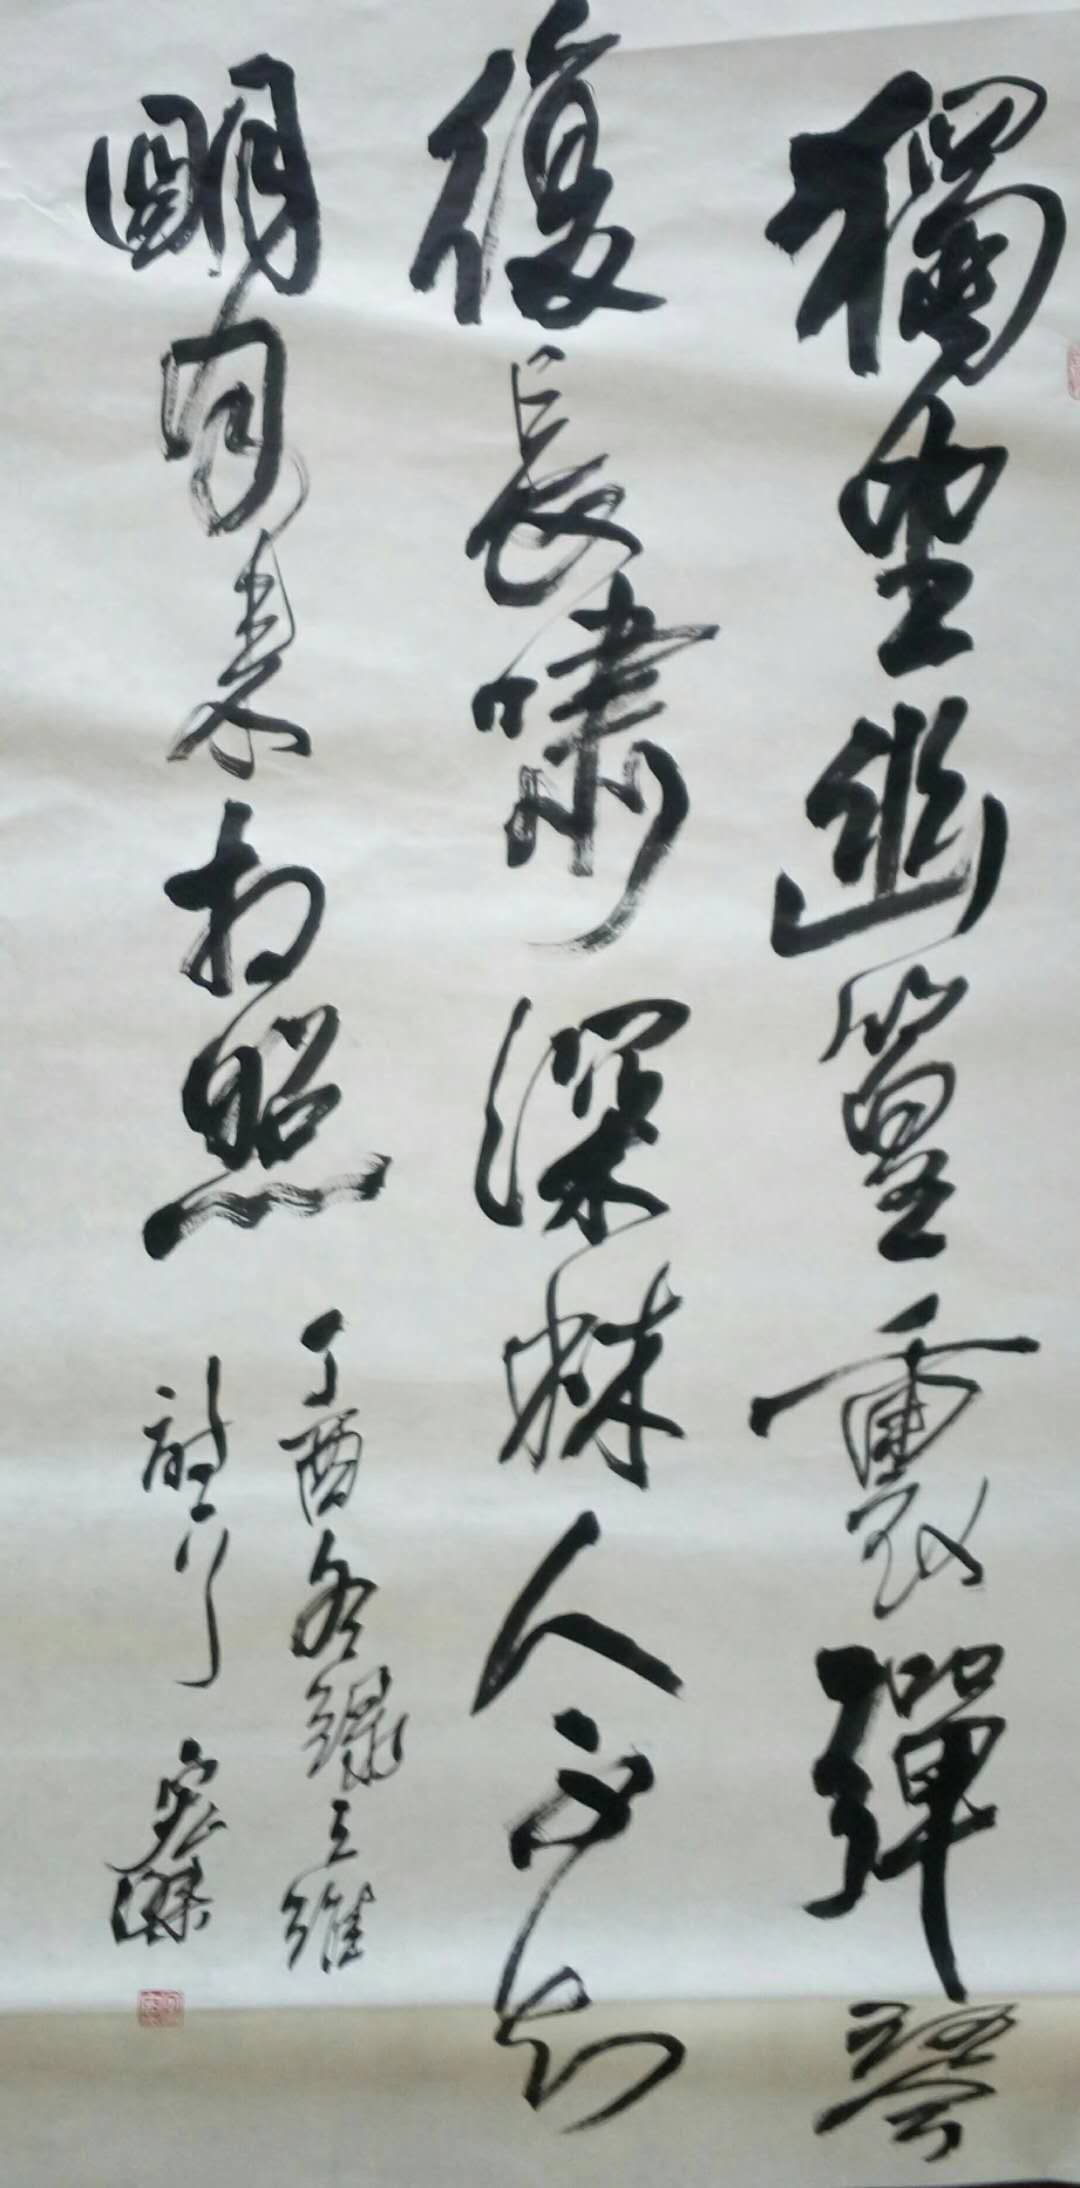 獨坐幽篁裏彈琴
復長嘯深林人不知
明月来相照
丁酉冬錄王維
詩一首 宏傑